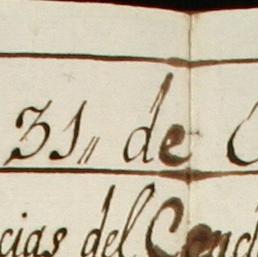 31,, de
cias del Cond